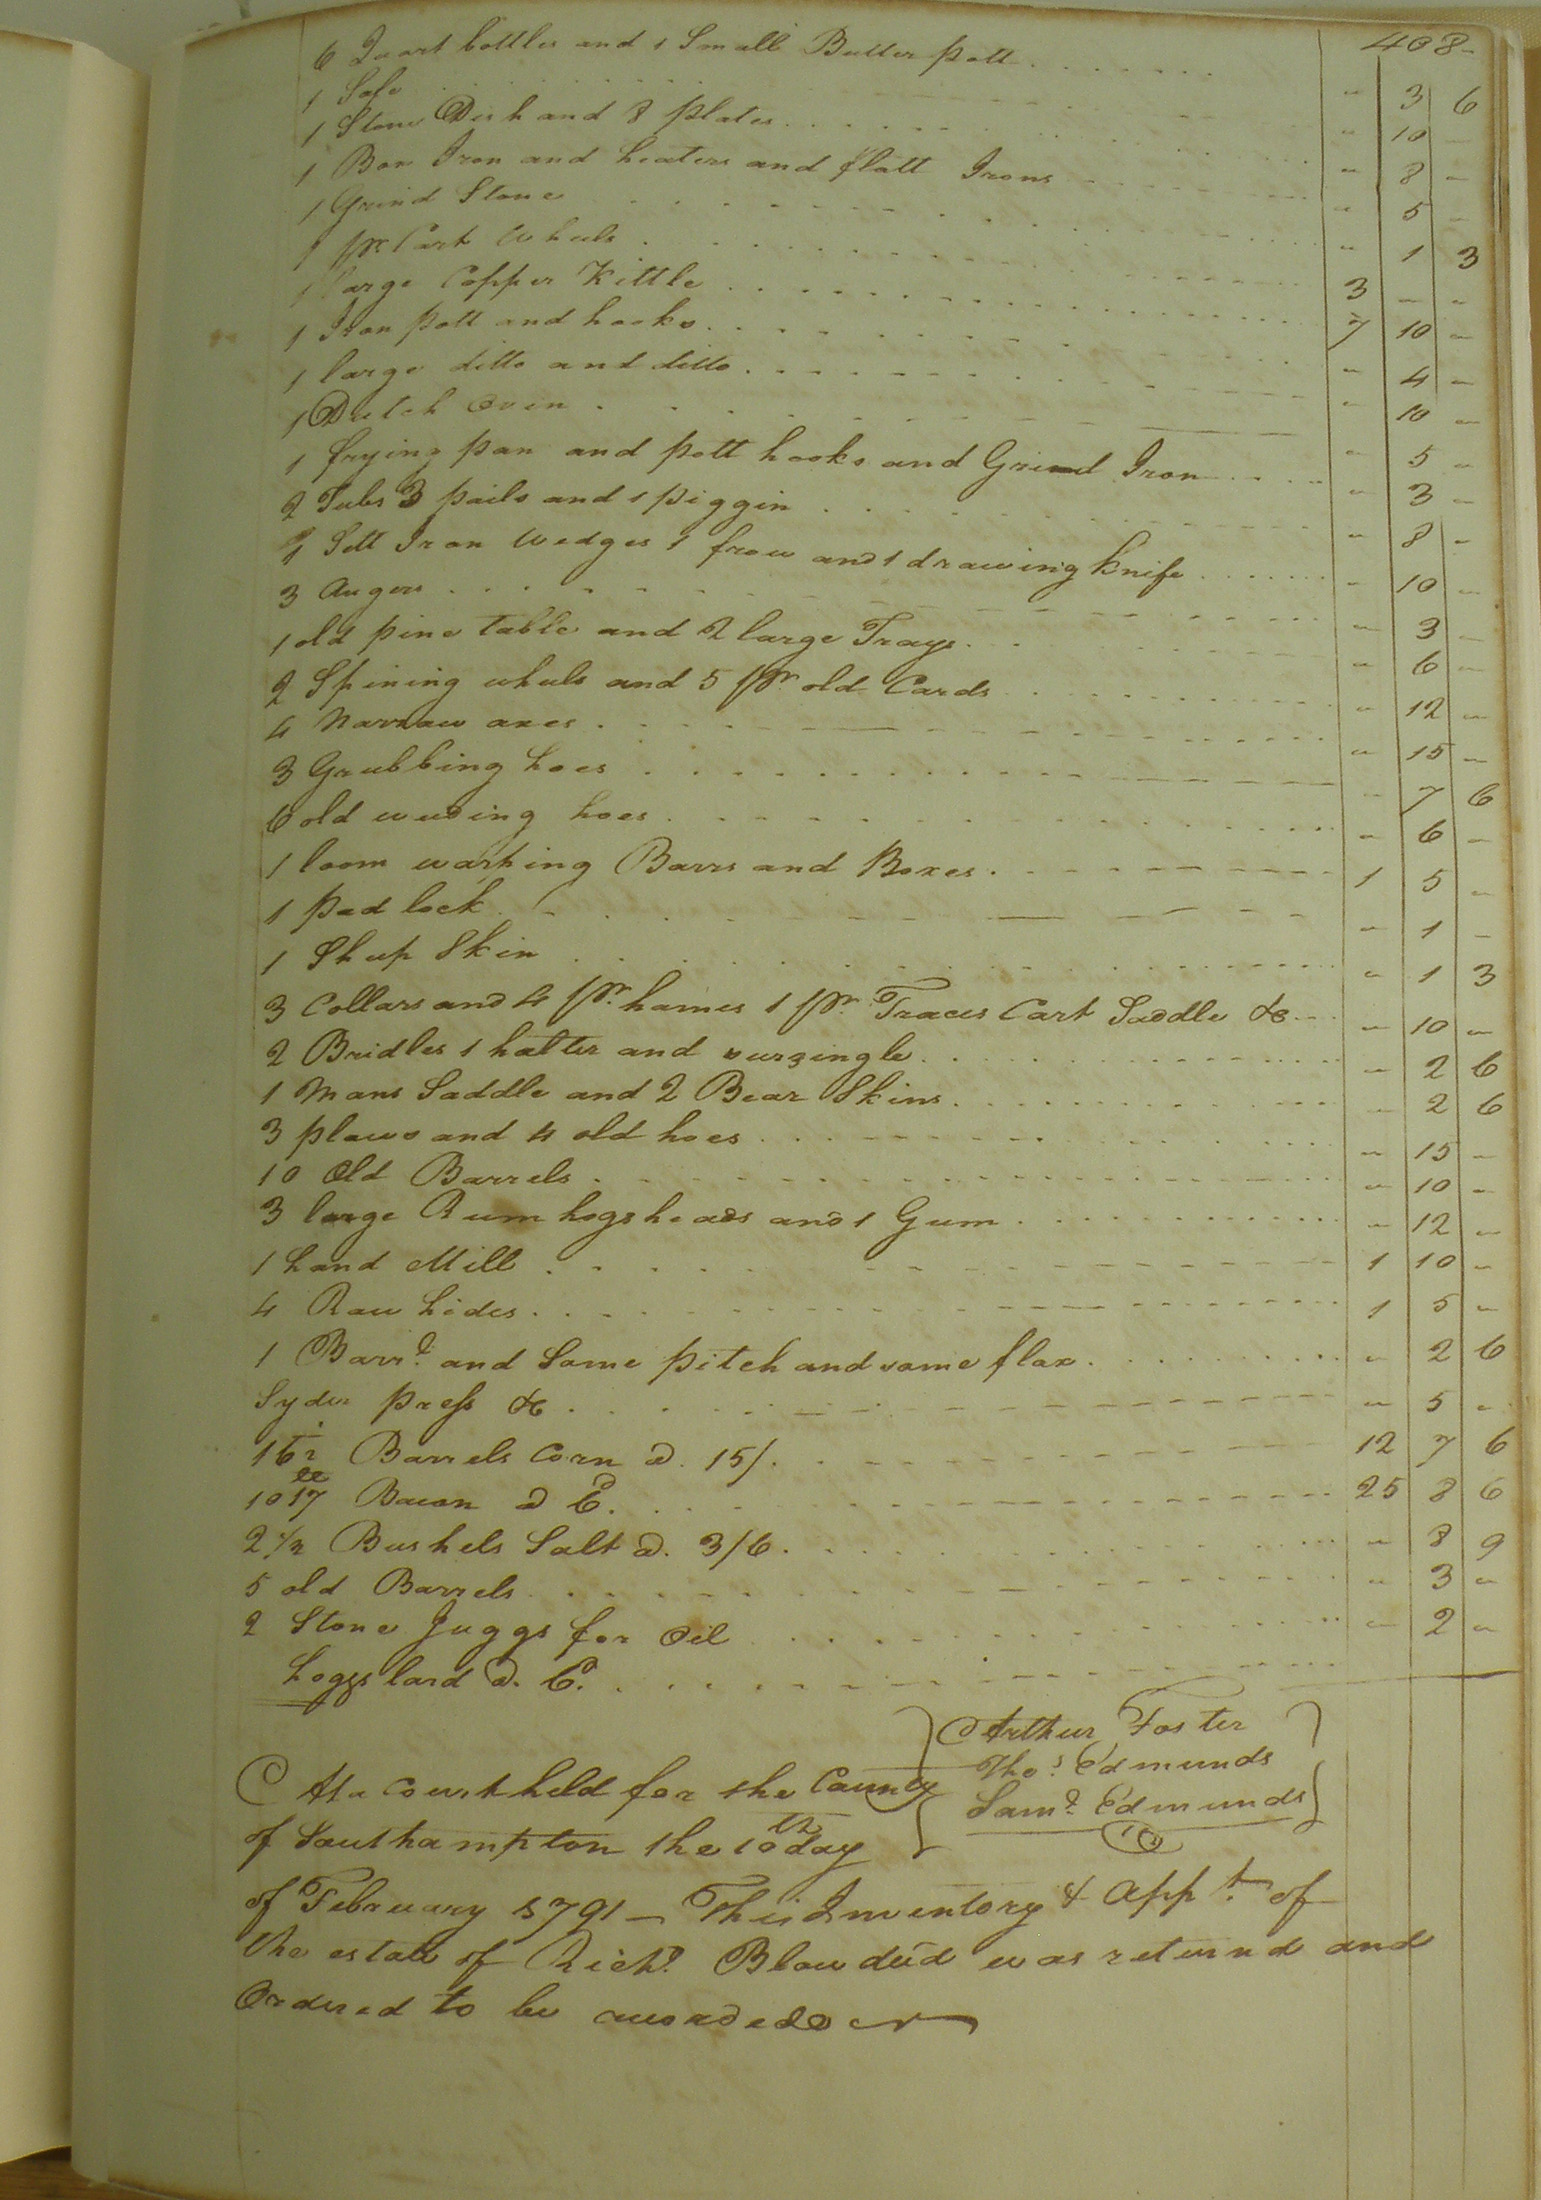 408-
6 Quart bottles and 1 Small Butter pott - 3 6
1 Safe - 10 -
1 Stone Dish and 8 plates - 8 -
1 Box Iron and heaters and flatt Irons - 5 -
1 Grind Stone - 1 3
1 pr. Cart Wheels 3 - -
1 large Copper Kittle 7 10 -
1 Iron pott and hooks - 4 -
1 large ditto and ditto - 10 -
1 Dutch Oven - 5 -
1 frying pan and pott hooks and Grind Iron - 3 -
2 Tubs 3 pails and 1 piggin - 8 -
1 Sett Iron Wedges 1 frow and 1 drawing knife - 10 -
3 Augers - 3 -
1 old pine table and 2 large Trays - 6 -
2 Spining wheels and 5 pr old Cards - 12 -
4 Narraw axes - 15 -
3 Grubbing hoes - 7 6
6 old weeding hoes - 6 -
1 loom warping Barrs and Boxes 1 5 -
1 pad lock - 1 -
1 Sheep Skin - 1 3
3 Collars and 4 pr. hames 1 pr. Traces Cart Saddle &c - 10 -
2 Bridles 1 halter and surzingle - 2 6
1 Mans Saddle and 2 Bear Skins - 2 6
3 plows and 4 old hoes - 15 -
10 Old Barrels - 10 -
3 large Rum hogsheads and 1 Gum - 12 -
1 hand Mill 1 10 -
4 Raw hides 1 5 -
1 Barrl. and Some pitch and some flax - 2 6
Syder press &c - 5 -
16½ Barrels Corn @ 15/. 12 7 6
1017 lb Bacon @ 6d. 25 8 6
2 1/2 Bushels Salt @ 3/6 - 8 9
5 old Barrels - 3 -
2 Stone Juggs for Oil - 2 -
hoggs lard @ 6d.
Arthur Foster
Thos. Edmunds
Saml. Edmunds
At a Court held for the County
of Southampton the 10th day
of February 1791 - This Inventory & Appt. of
the estate of Richd. Blow deed was returnd and
Ordered to be recorded